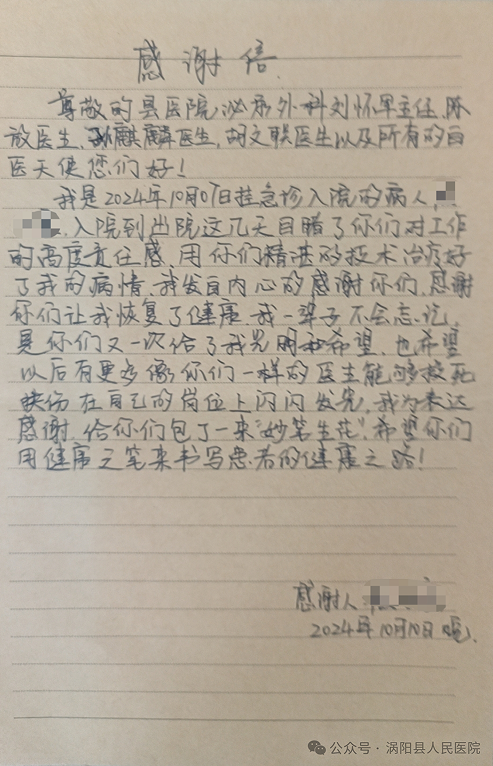 感谢信
尊敬的县医院泌尿外科刘怀军主任、陈
放医生、孙麒麟医生，胡文联医生以及所有的白
医天使您们好！
我是2024年10月07日挂急诊入院的病人，
入院到出院这几天目睹了你们对工作
的高度责任感，用你们精湛的技术治疗好
了我的病情，我发自内心的感谢你们，感谢
你们让我恢复了健康，我一辈子不会忘记，
是你们又一次给了我光明和希望，也希望
以后有更多像你们一样的医生能够救死
扶伤在自己的岗位上闪闪发光，我为表达
感谢，给你们包了一束"妙笔生花"，希望你们
用健康之笔来书写患者的健康之路！
感谢人
2024年10月10日晚
公众号·涡阳县人民医院